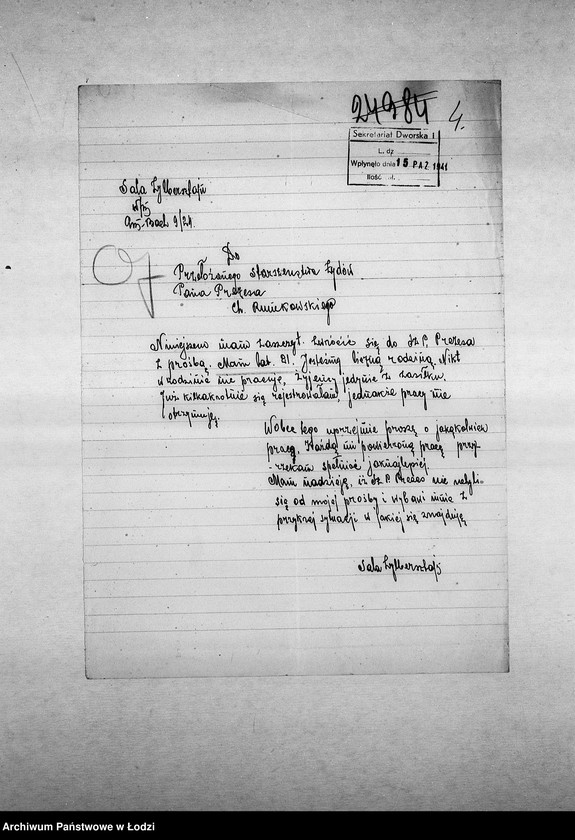 24984 4.
Sekretariat Dworska 1
L. dz
Wpłynęło dnia 15 PAŹ. 1941
Ilość zał.
Sala Zylbersztajn
w/m
9/24
Do
Przełożonego Starszeństwa Żydów
Pana Prezesa
Ch. Rumkowskiego
Niniejszem mam zaszczyt zwrócić się do Sz. P. Prezesa
z prośbą. Mam lat 21. Jesteśmy liczną rodziną. Nikt
w rodzinie nie pracuje, żyjemy jedynie z zasiłku.
Już kilkakrotnie się rejestrowałam, jednakże pracy nie
otrzymuję.
Wobec tego uprzejmie proszę o jakąkolwiek
pracę. Każdą mi powierzoną pracę przy-
-rzekam spełniać jaknajlepiej.
Mam nadzieję, iż Sz. P. Prezes nie uchyli
się od mojej prośby i wybawi mnie z
przykrej sytuacji w jakiej się znajduję
Sala Zylbersztajn
Archiwum Państwowe w Łodzi